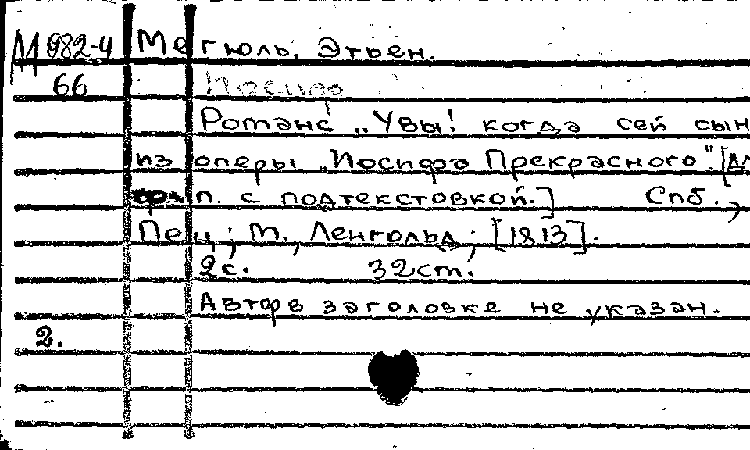 М 982-4 Мегюль, Этьен.
66 Иосиф
Романс „Увы! когда сей сын
из оперы „Иосифа Прекрасного". [Дл
ф.-п. с подтекстовкой.] Спб.,
Пец; М., Ленгольд; [1813].
2с. 32ст.
Автор в заголовке не указан.
2.